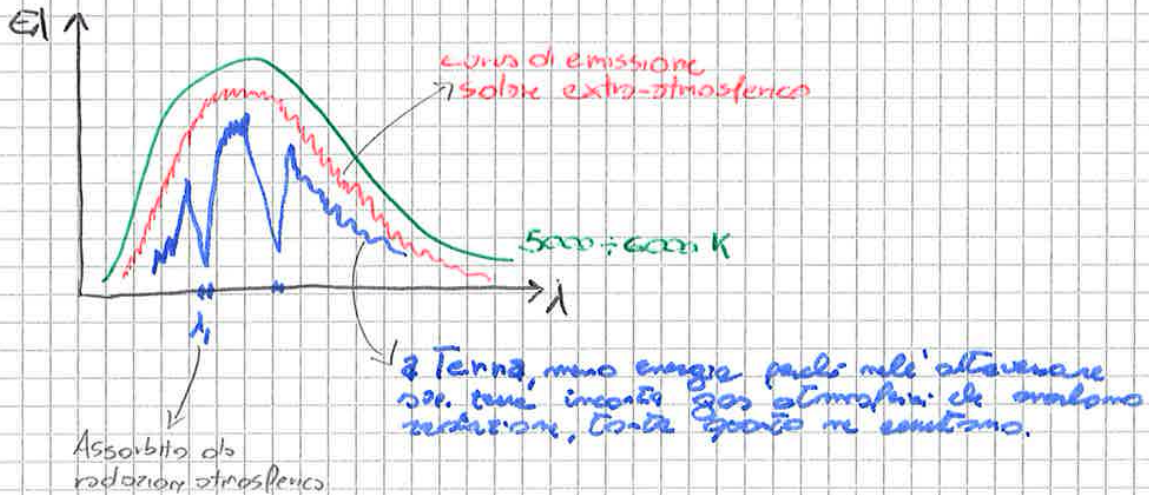 Eλ
curva di emissione
solare extra-atmosferico
5000÷6000 K
λ
λ₁
a Terra, meno energia perché nell'attraversare
gas atmosferici che
radiazione, tanta quanto ne emettono.
Assorbito da
radiazion atmosferico